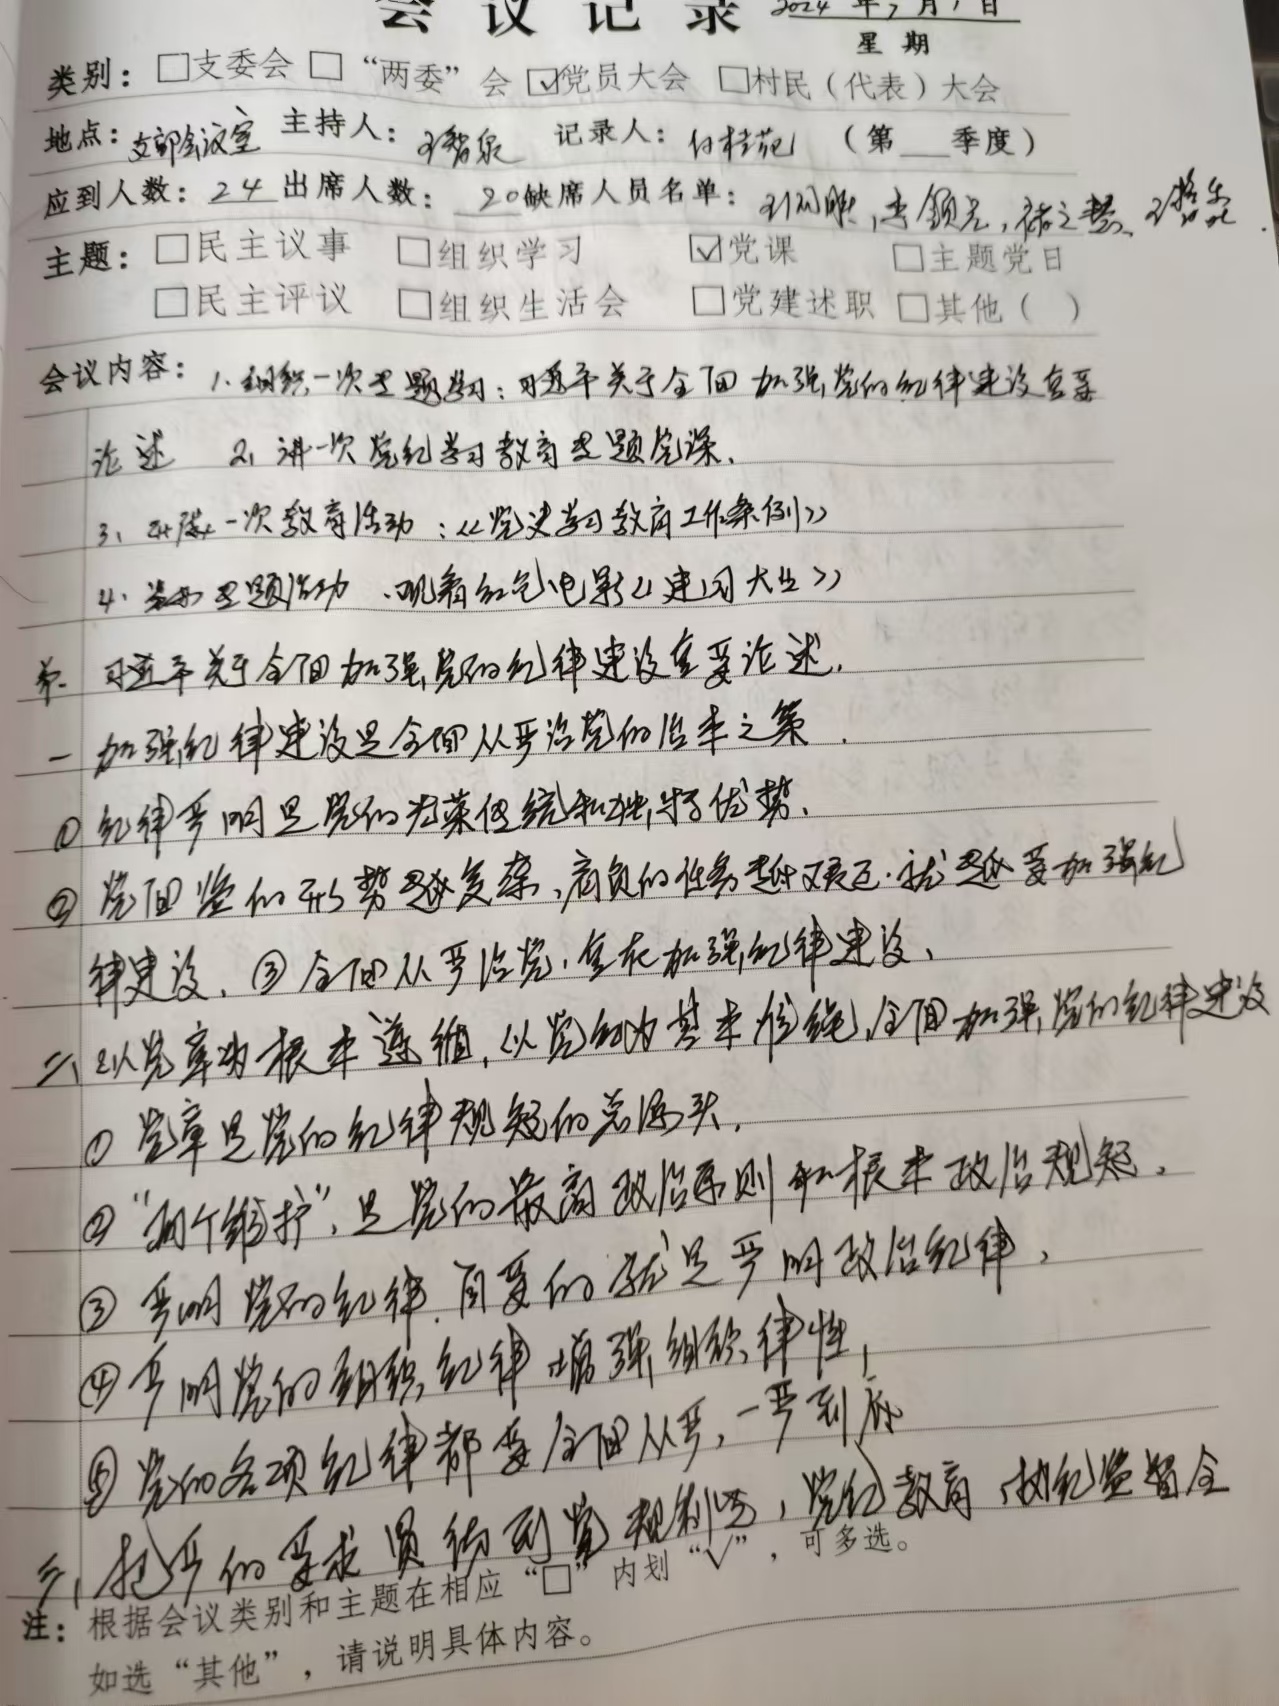 会议记录 2024年7月1日
星期
类别：□支委会 □“两委”会 ☑党员大会 □村民（代表）大会
地点：支部会议室 主持人： 记录人： （第 季度）
应到人数：24 出席人数：20 缺席人员名单：
主题：□民主议事 □组织学习 ☑党课 □主题党日
□民主评议 □组织生活会 □党建述职 □其他（ ）
会议内容：1.组织一次主题学习：习近平关于全面加强党的纪律建设重要
论述 2、讲一次党纪学习教育主题党课、
3、开展一次教育活动：《党史学习教育工作条例》
4、主题活动、观看红色电影《建国大业》
习近平关于全面加强党的纪律建设重要论述.
一 加强纪律建设是全面从严治党的治本之策.
① 纪律严明是党的光荣传统和独特优势.
② 党面临的形势越复杂、肩负的任务越艰巨.就越要加强纪
律建设、③全面从严治党.重在加强纪律建设、
二、以党章为根本遵循,以党纪为基本准绳,全面加强党的纪律建设
① 党章是党的纪律规矩的总源头.
② “两个维护”,是党的最高政治原则和根本政治规矩.
③ 严明党的纪律.首要的就是严明政治纪律,
④ 严明党的组织纪律 增强组织纪律性,
⑤ 党的各项纪律都要全面从严,一严到底
三、把严的要求贯彻到党规制定,党纪教育,执纪监督全
注：根据会议类别和主题在相应“□”内划“√”，可多选。
如选“其他”，请说明具体内容。